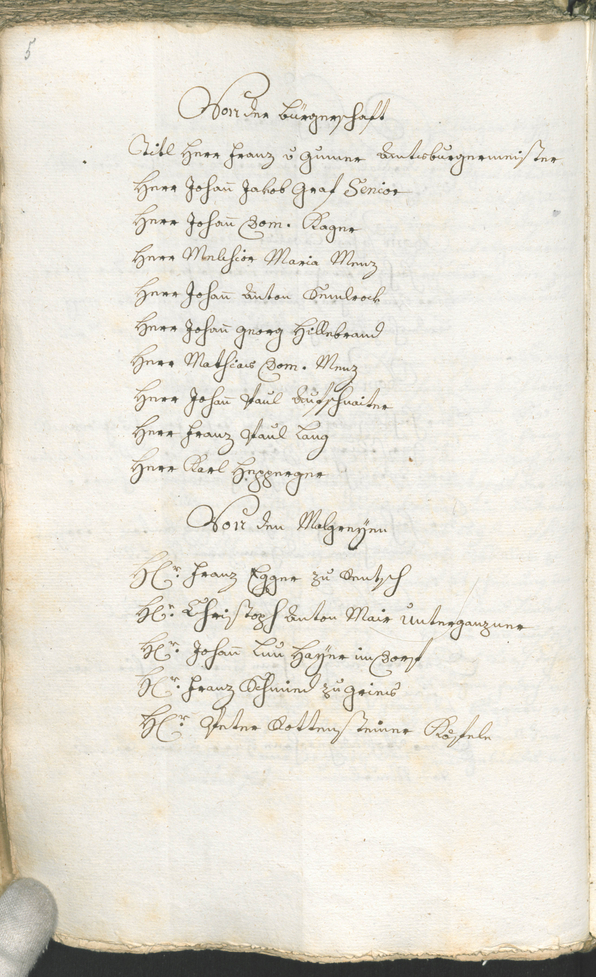 5
Von der bürgerschaft
Titl Herr Franz v Gumer Amtsburgermeister
Herr Johañ Jakob Graf Senior
Herr Johañ Dom. Kager
Herr Melchior Maria Menz
Herr Johañ Anton
Herr Johañ georg Hillebrand
Herr Mathias Dom. Menz
Herr Johañ Paul Aufschnaiter
Herr Franz Paul Lang
Herr Karl Hepperger
Von den Malgreÿen
Hr. Franz Egger zu Sentsch
Hr. Christoph Anton Mair Unterganzner
Hr. Johañ im Dorf
Hr. Franz Schmied zu gries
Hr. Peter Rottensteiner Röfele